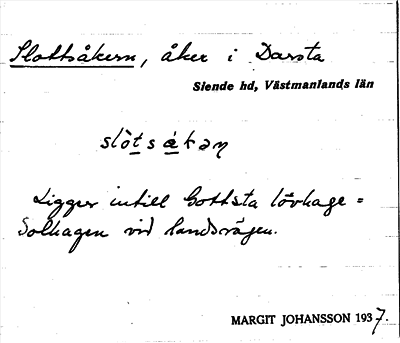 Slottsåkern, åker i Darsta
Siende hd, Västmanlands län
slòt s åkaɳ
Ligger intill Gottsta lövhage =
Solhagen vid landsvägen.
MARGIT JOHANSSON 1937.